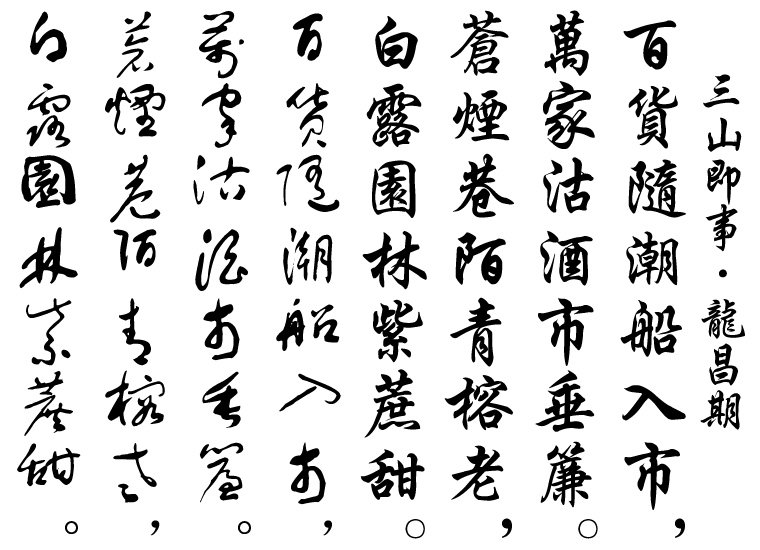 三山即事·龍昌期
百貨隨潮船入市，
萬家沽酒市垂簾。
蒼煙巷陌青榕老，
白露園林紫蔗甜。
百貨隨潮船入市，
萬家沽酒市垂簾。
蒼煙巷陌青榕老，
白露園林紫蔗甜。